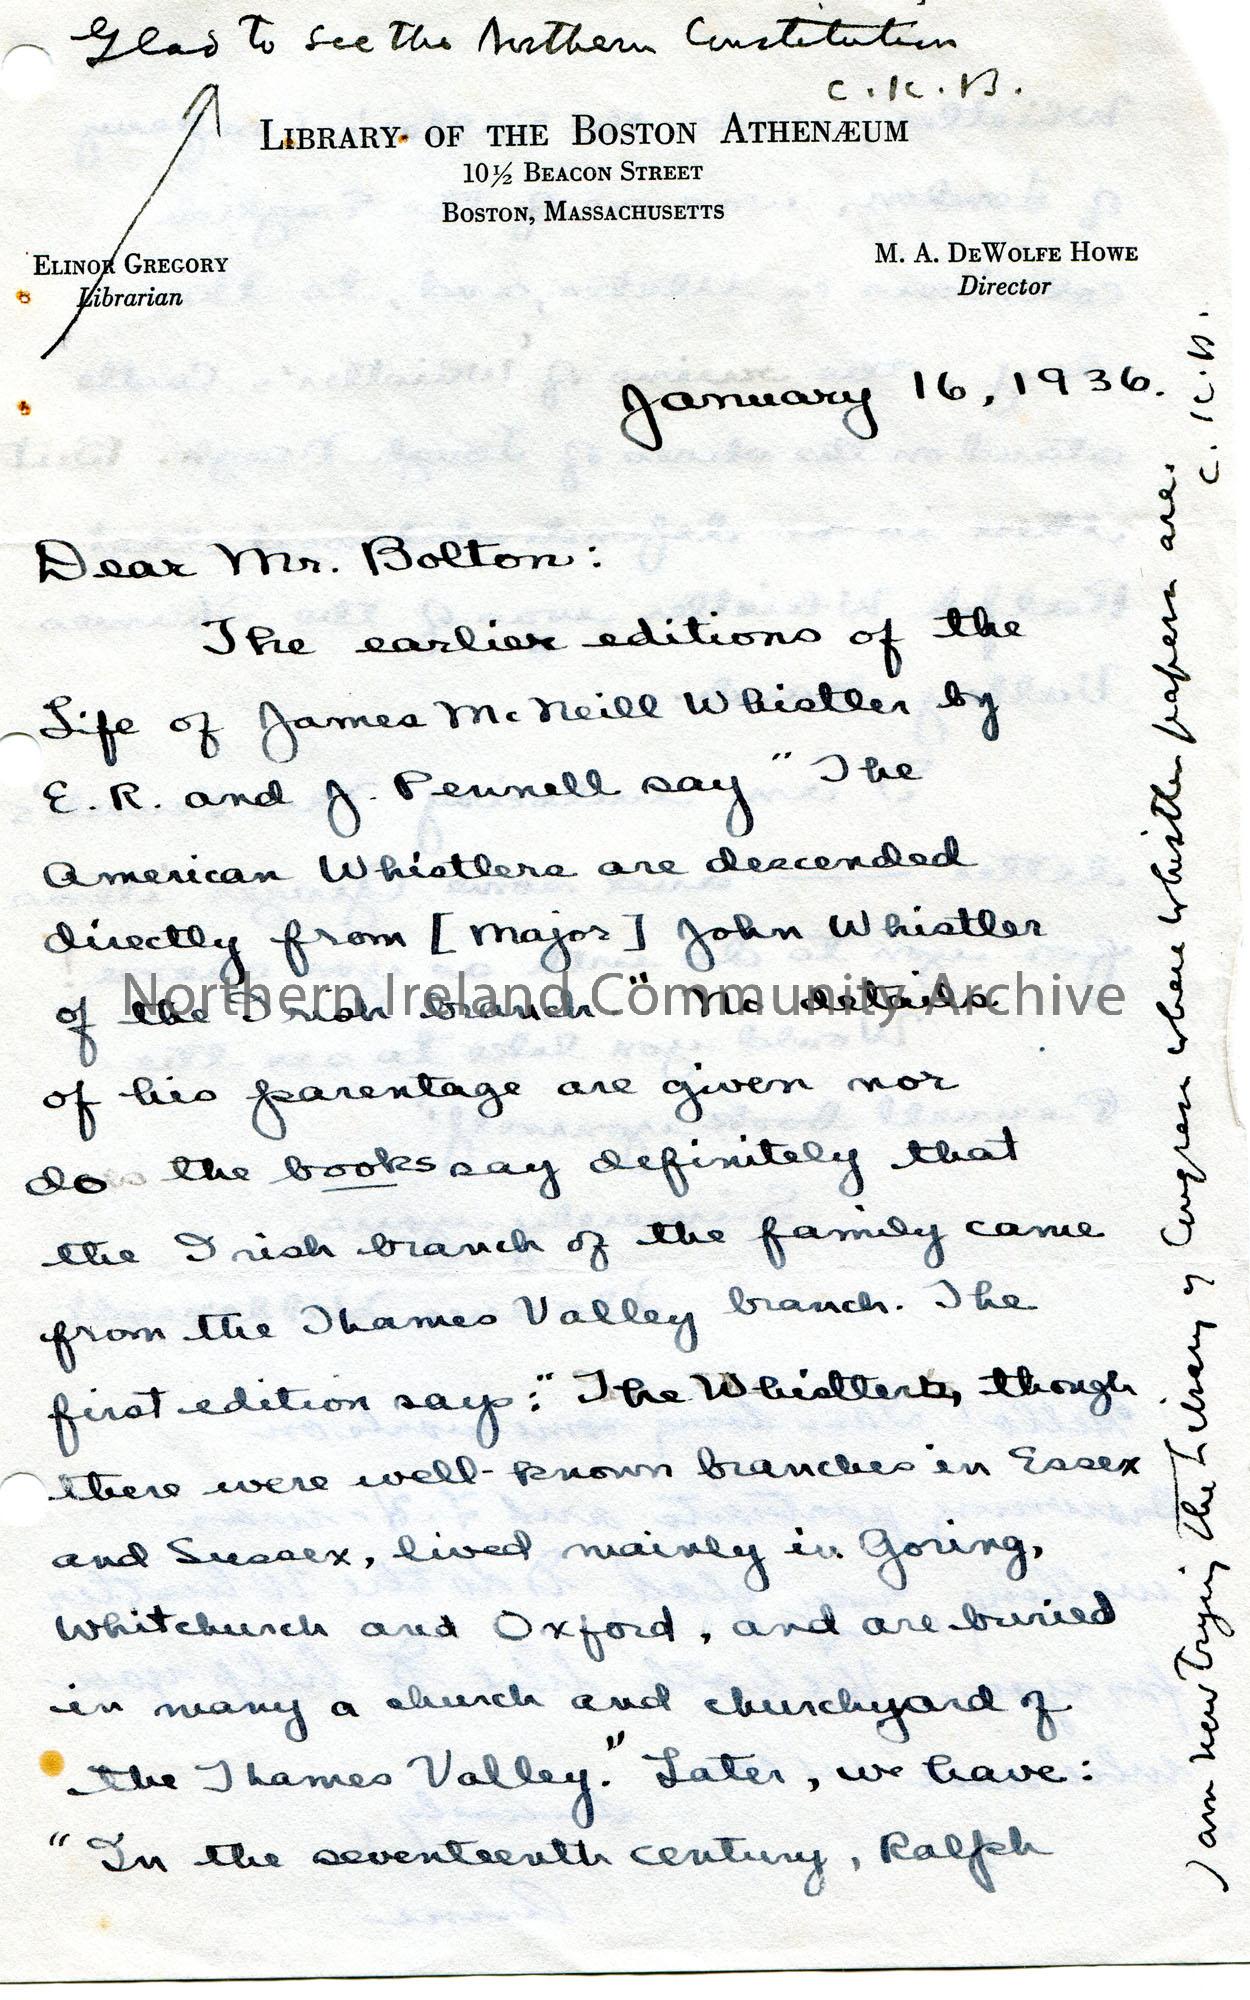 Glad to see the Northern Constitution
C. K. B.
LIBRARY OF THE BOSTON ATHENÆUM
10½ BEACON STREET
BOSTON, MASSACHUSETTS
ELINOR GREGORY
Librarian
M. A. DEWOLFE HOWE
Director
January 16, 1936.
Dear Mr. Bolton:
The earlier editions of the
Life of James McNeill Whistler by
E. R. and J. Pennell say "The
American Whistlers are descended
directly from [Major] John Whistler
of the Irish branch" No details
Northern Ireland Community Archive
of his parentage are given nor
do the books say definitely that
the Irish branch of the family came
from the Thames Valley branch. The
first edition says: "The Whistlers, though
there were well-known branches in Essex
and Sussex, lived mainly in Goring,
Whitchurch and Oxford, and are buried
in many a church and churchyard of
the Thames Valley." Later, we have:
"In the seventeenth century, Ralph
I am now trying the Library of Congress where Whistler papers are.
C. K. B.